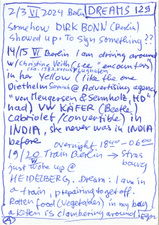 2/3 VI 2024 Berlin DREAMS 128
somehow DIRK BONN (Berlin)
showed up. To sign something ??
14/15 VI Berlin I am driving around
w/ christine With ("Lee" encounters)
in her yellow (like the one
Diethelm Semmel @ Advertising agency
"von Mengersen & Semholtz, HB"
had) VW KÄFER (Beetle,
cabriolet / convertible) in
INDIA, she never was in INDIA
before overnight 18:44 - 06:00
19/20 Train Berlin → Stras
just woke up @ bourg
HEIDELBERG. Dream: I am in
a train, preparing to get off.
Rotten food (vegetables) in my bag,
a kitten is clambering around